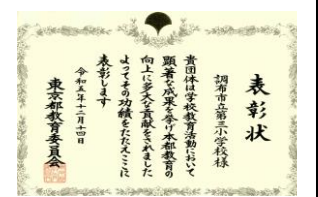 表彰状
調布市立第三小学校様
貴団体は学校教育活動において
顕著な成果を挙げ本都教育の
向上に多大な貢献をされました
よってその功績をたたえここに
表彰します
令和五年十二月十四日
東京都教育委員会